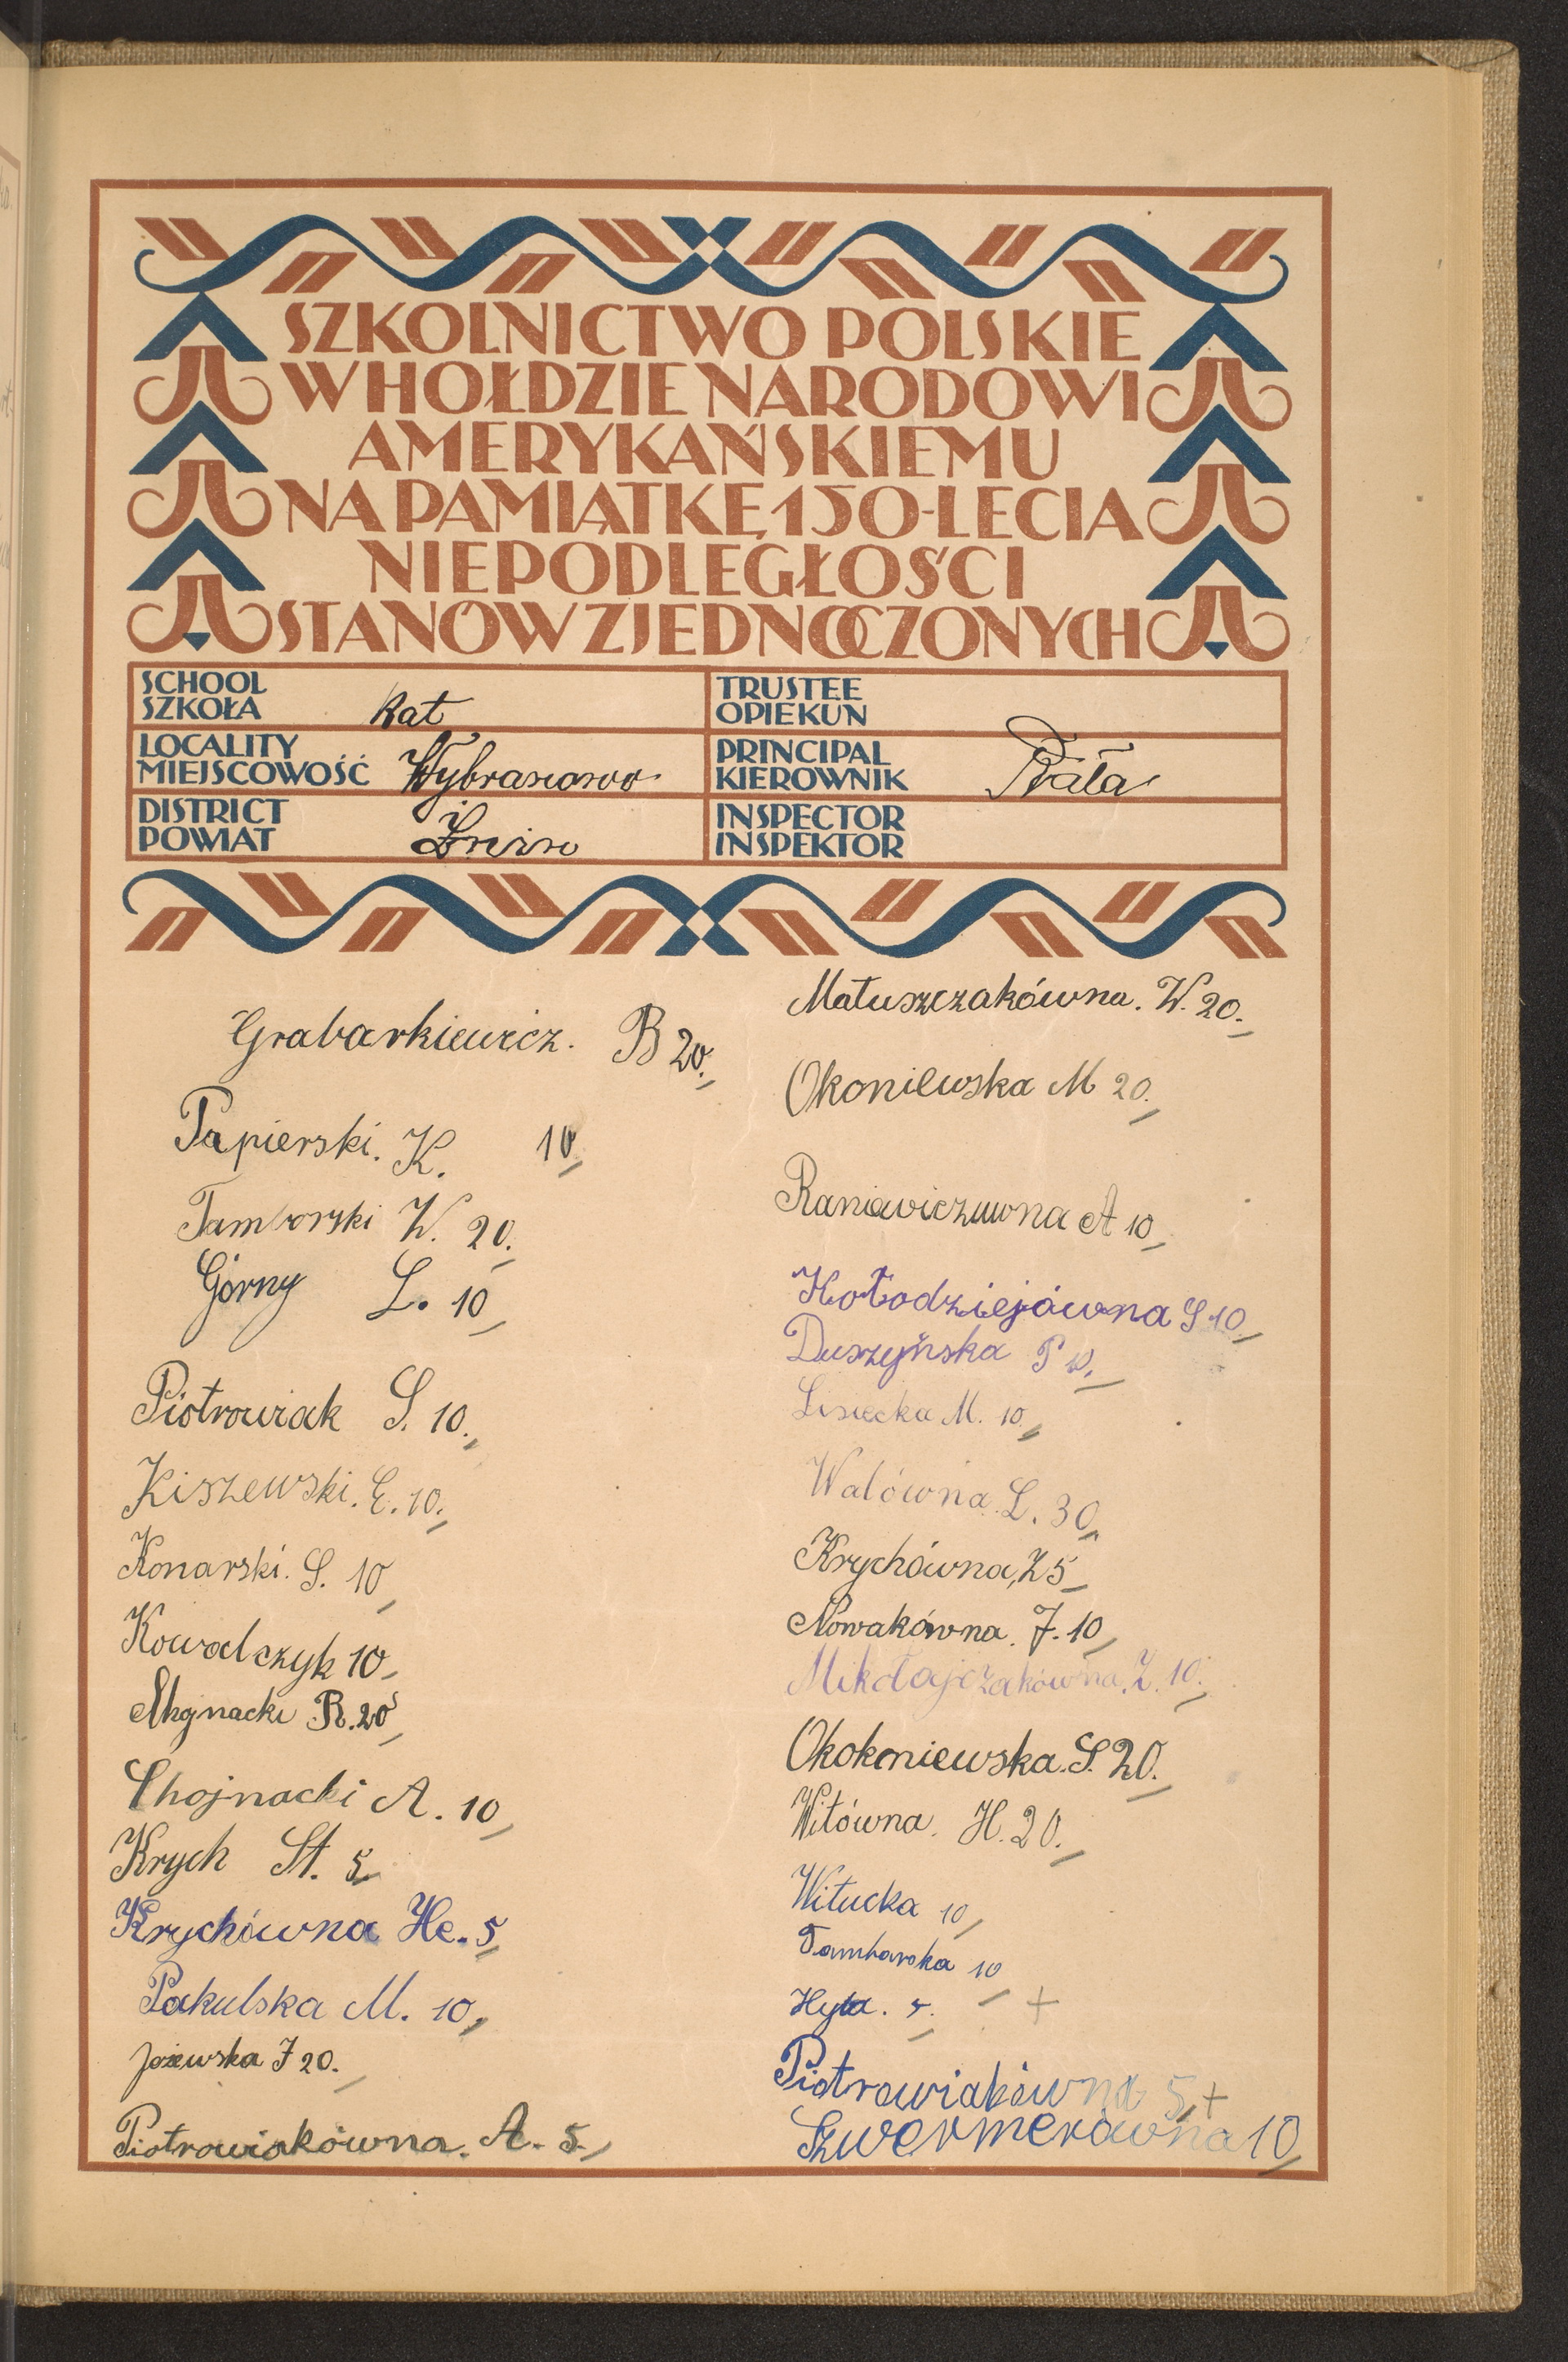 SZKOLNICTWO POLSKIE
W HOŁDZIE NARODOWI
AMERYKAŃSKIEMU
NA PAMIĄTKĘ 150-LECIA
NIEPODLEGŁOŚCI
STANÓW ZJEDNOCZONYCH
SCHOOL
SZKOŁA Kat
TRUSTEE
OPIEKUN
LOCALITY
MIEJSCOWOŚĆ Wybranowo
PRINCIPAL
KIEROWNIK
DISTRICT
POWIAT Żnin
INSPECTOR
INSPEKTOR
Grabarkiewicz. B 20.
Papierski. K. 10
Tamborski W. 20.
Górny L. 10
Piotrowiak S. 10.
Kiszewski. E. 10.
Konarski. S. 10
Kowalczyk 10
Chojnacki R. 20
Chojnacki A. 10
Krych St. 5
Krychówna He. 5
Pakulska M. 10
Jeżewska J 20.
Piotrowiakówna. A. 5.
Matuszczakówna. W. 20.
Okoniewska M 20.
Raniewiczuwna A 10
Kołodziejówna S 10
Duszyńska P 10.
Lisiecka M. 10
Walówna. L. 30
Krychówna, Z 5
Nowakówna. J. 10
Mikołajczakówna. Z. 10.
Okokoniewska. S. 20.
Witówna. H. 20.
Witucka 10
Tamborska 10
Hyła. 5. +
Piotrowiakówna 5 +
Szwermerówna 10